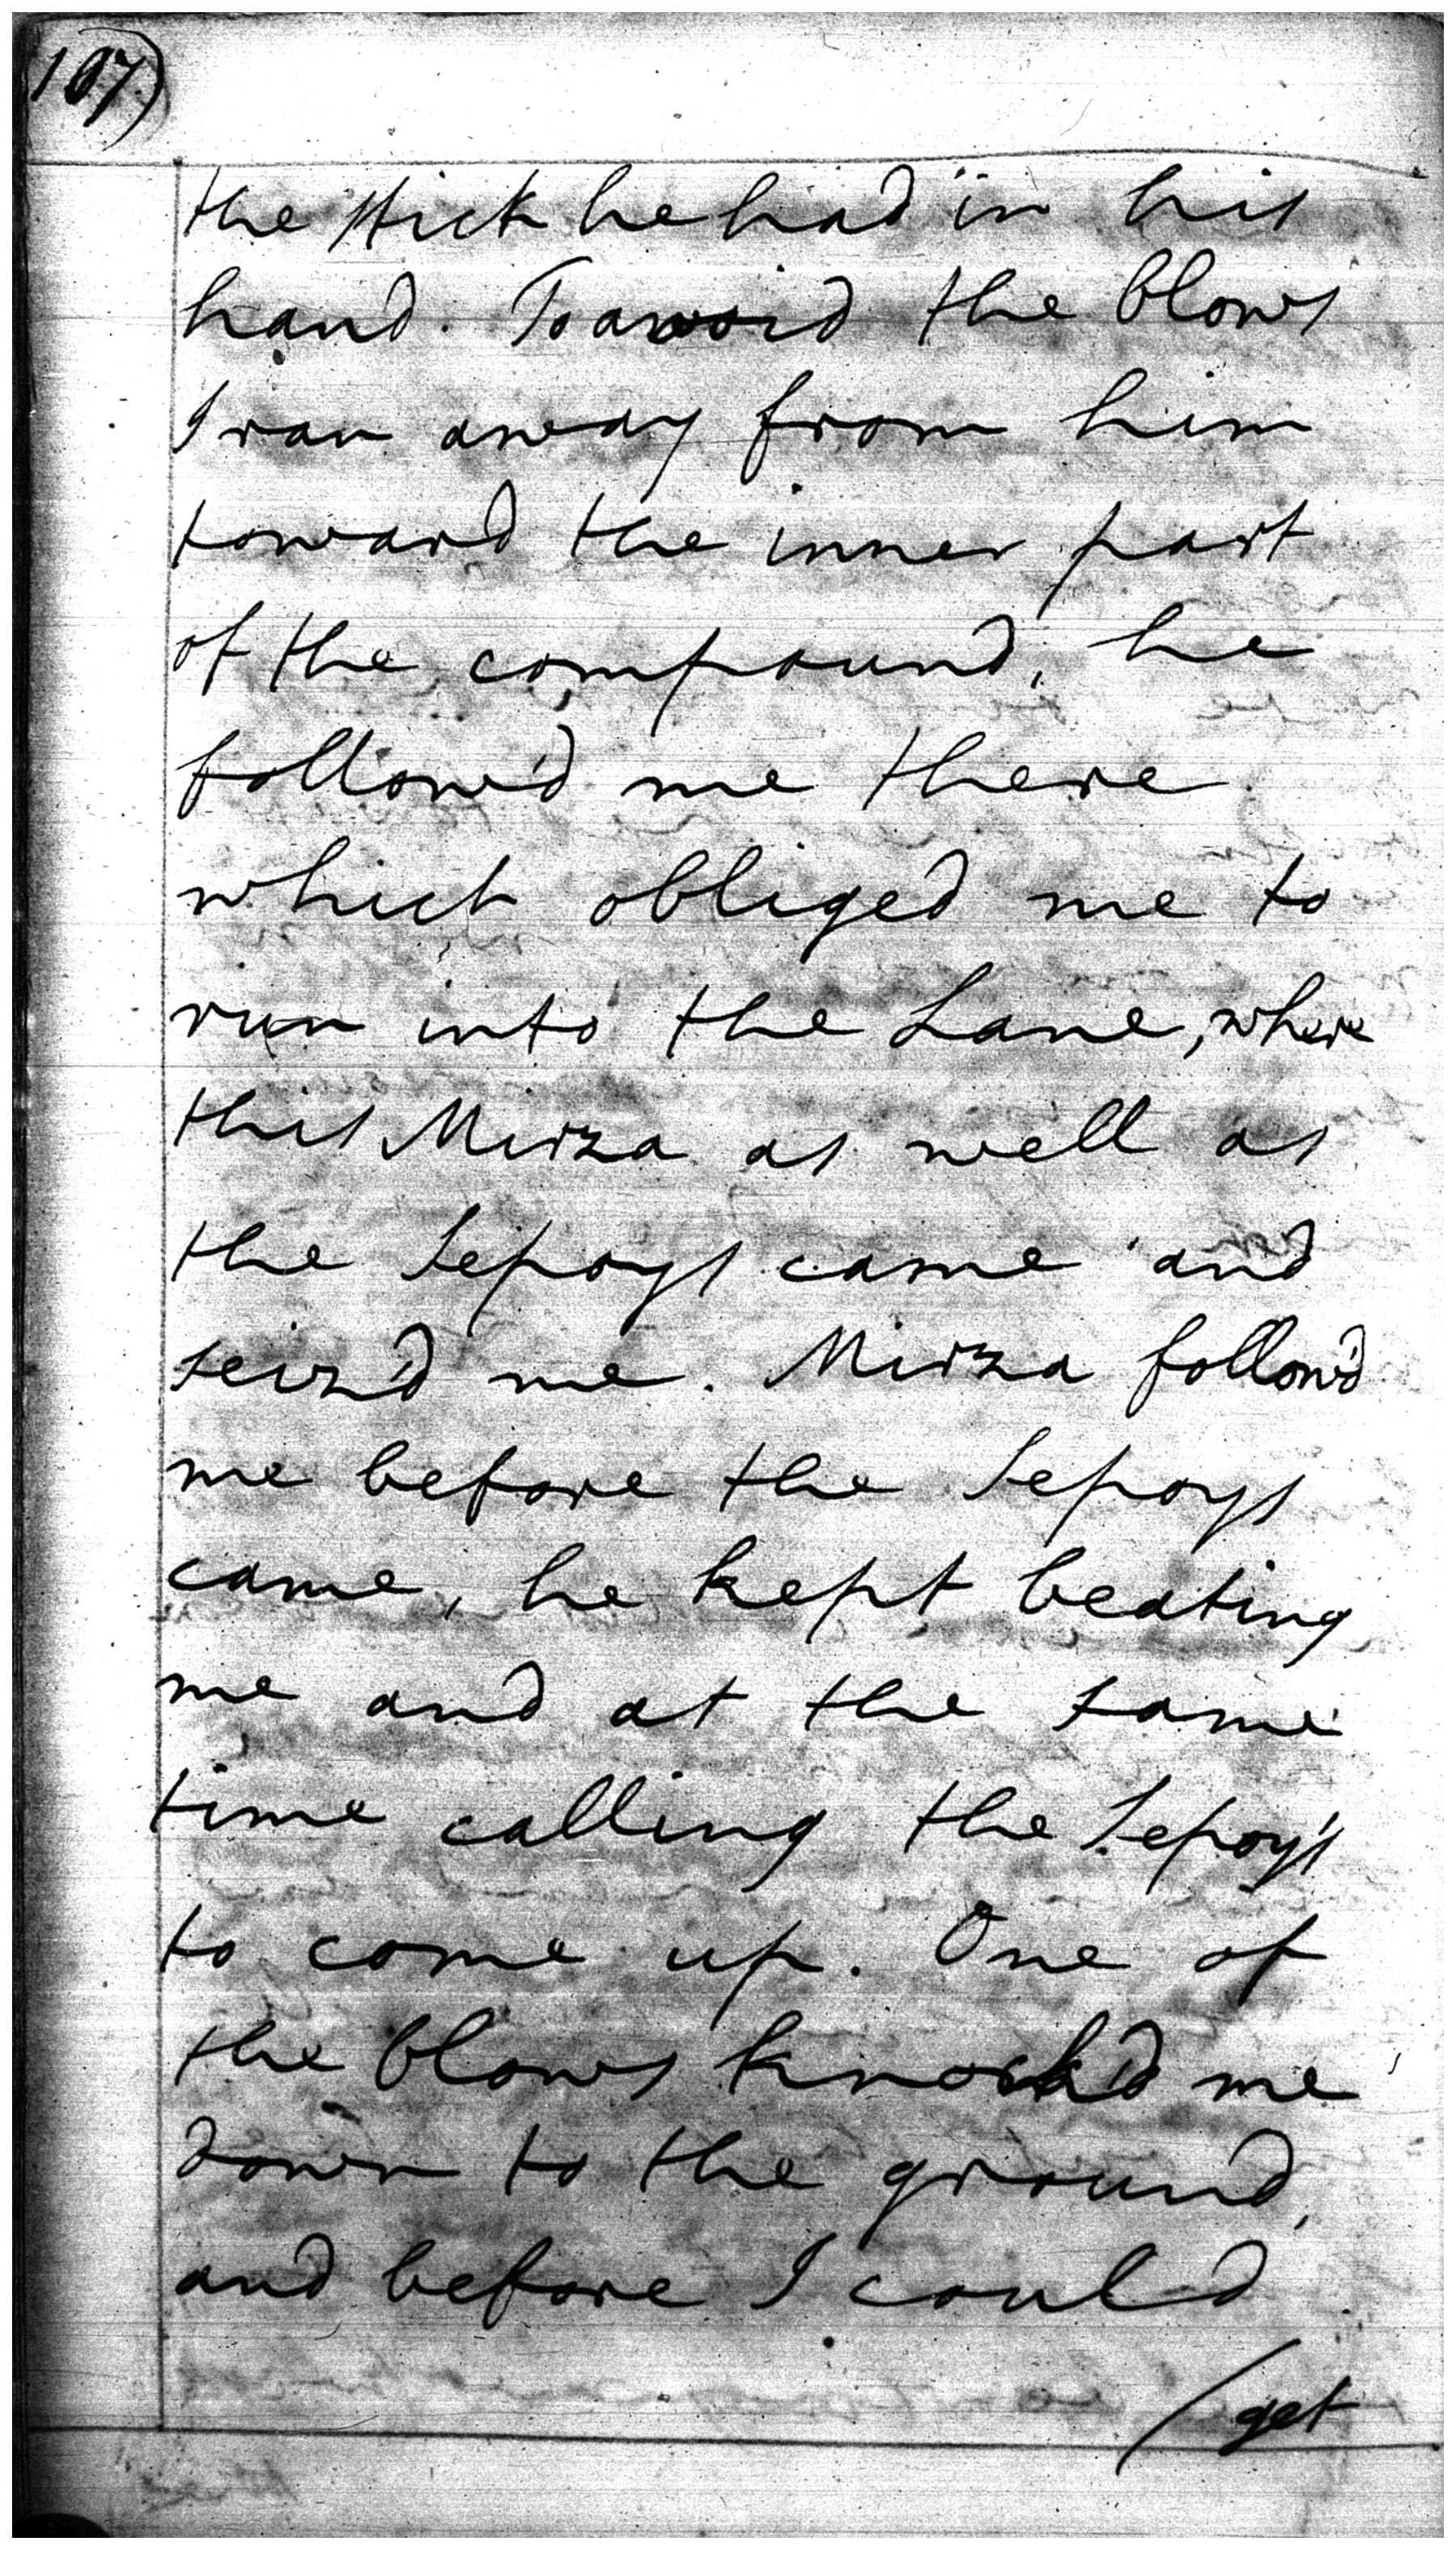 107)
the stick he had in his
hand. To avoid the blows
I ran away from him
toward the inner part
of the compound, he
follow'd me there
which obliged me to
run into the Lane, where
this Mirza as well as
the Sepoys came and
seiz'd me. Mirza follow'd
me before the Sepoys
came, he kept beating
me and at the same
time calling the Sepoys
to come up. One of
the blows knock'd me
down to the ground,
and before I could
/get